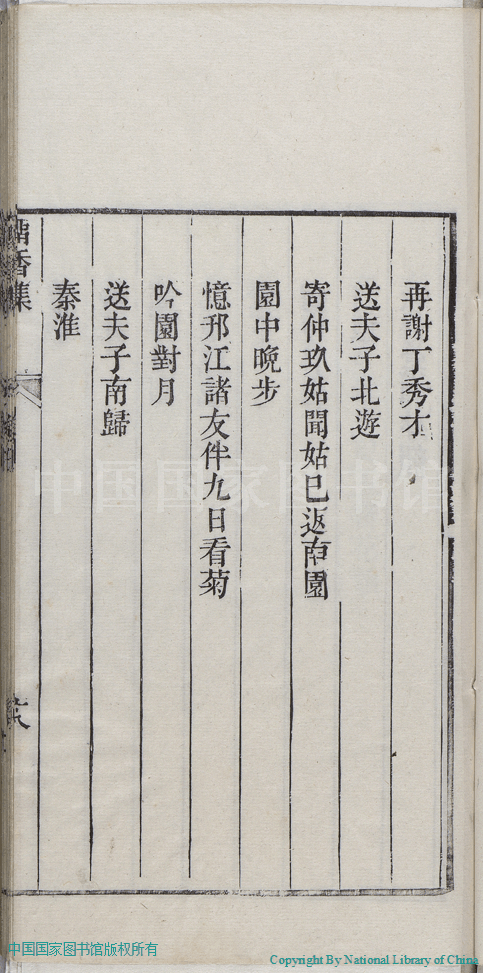 再謝丁秀才
送夫子北遊
寄仲玖姑聞姑已返南園
園中晚步
憶邗江諸友伴九日看菊
吟園對月
送夫子南歸
秦淮
香集
中国国家图书馆
中国国家图书馆版权所有
Copyright By National Library of China